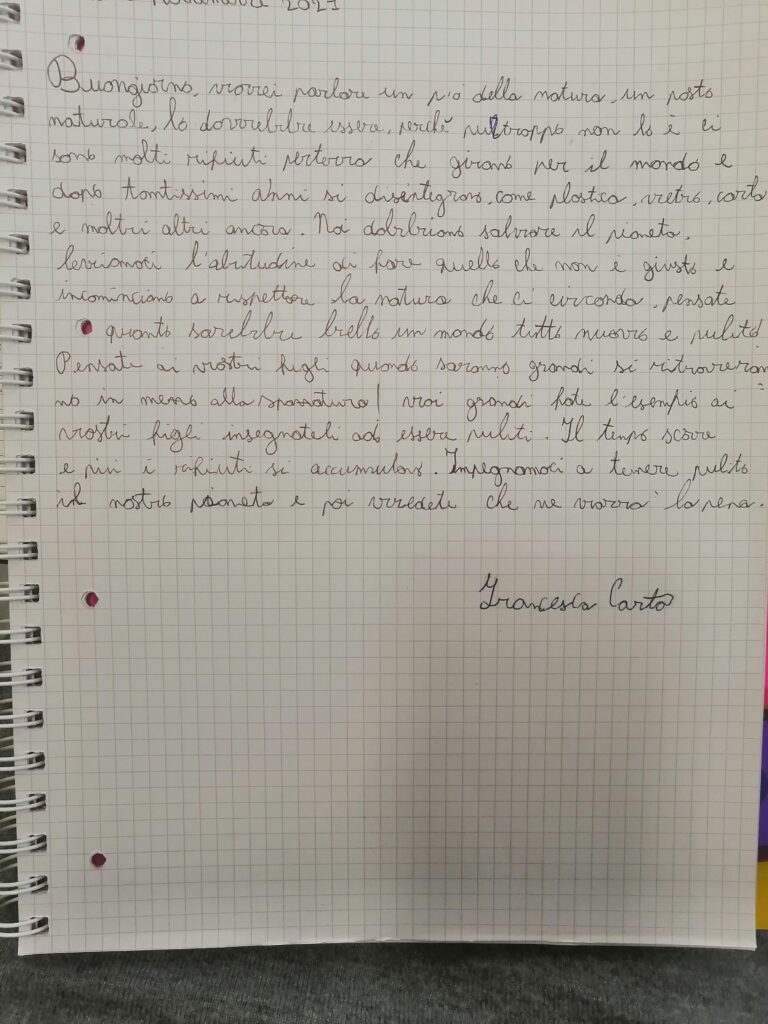 Novembre 2021
Buongiorno, vorrei parlare un pó della natura, un posto
naturale, lo dovrebbre essere, perchè pultroppo non lo è ci
sono molti rifiuti perterra che girano per il mondo e
dopo tantissimi anni si disintegrano, come plastica, vetro, carta
e moltri altri ancora. Noi dobbriamo salvare il pianeta,
leviamoci l'abitudine di fare quello che non è giusto e
incominciamo a rispettare la natura che ci circonda, pensate
quanto sarebbre bello un mondo tutto nuovo e pulito
Pensate ai vostri figli quando saranno grandi si ritroveran=
no in mezzo alla spazzatura! voi grandi fate l'esempio ai
vostri figli insegnateli ad essere puliti. Il tempo scorre
e più i rifiuti si accumulano. Impegnamoci a tenere pulito
il nostro pianeta e poi vredete che ne varrà la pena.
Francesca Carta